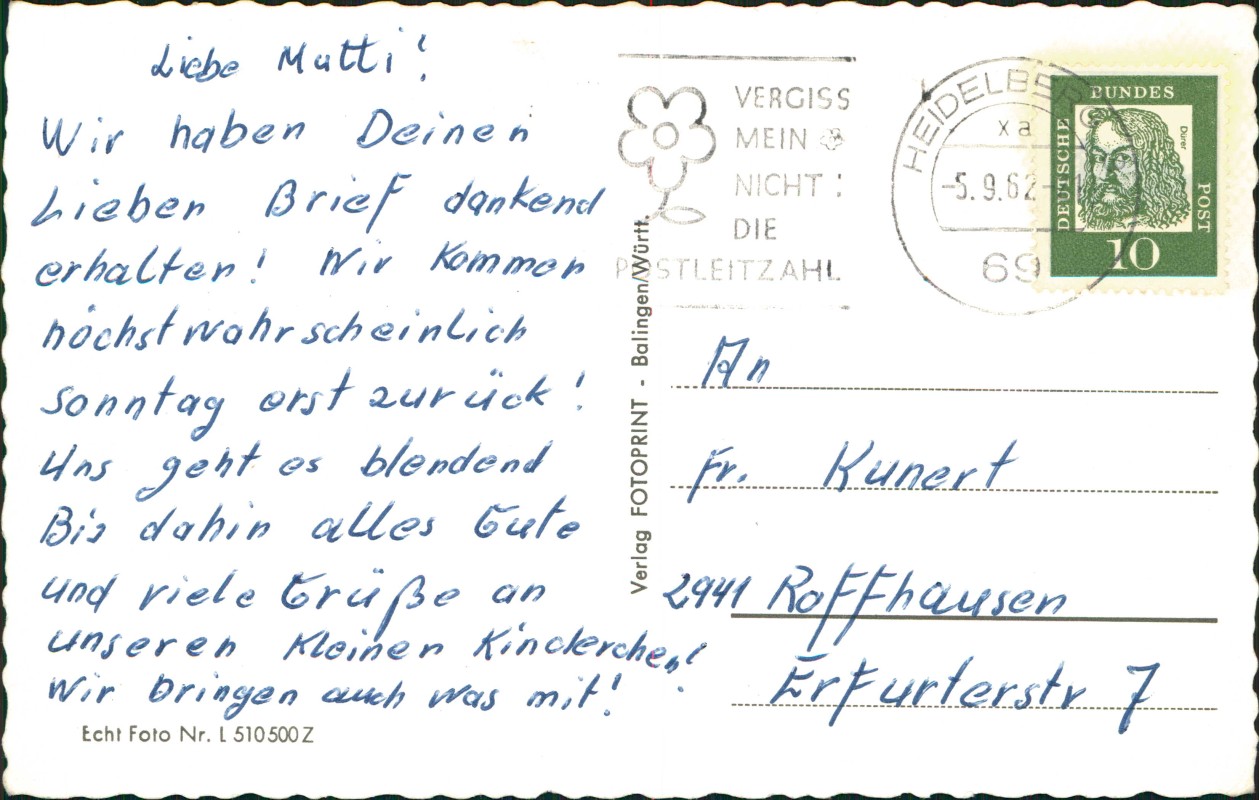 Liebe Mutti!
Wir haben Deinen
Lieben Brief dankend
erhalten! Wir Kommen
höchstwahrscheinlich
Sonntag erst zurück!
Uns geht es blendend
Bis dahin alles Gute
und viele Grüße an
unseren Kleinen Kinderchen!
Wir bringen auch was mit!
Echt Foto Nr. L 510500Z
Verlag FOTOPRINT - Balingen/Württ.
VERGISS
MEIN
NICHT:
DIE
POSTLEITZAHL
HEIDELBERG
xa
-5.9.62-
69
DEUTSCHE BUNDES POST
Dürer
10
An
Fr. Kunert
2941 Roffhausen
Erfurterstr 7